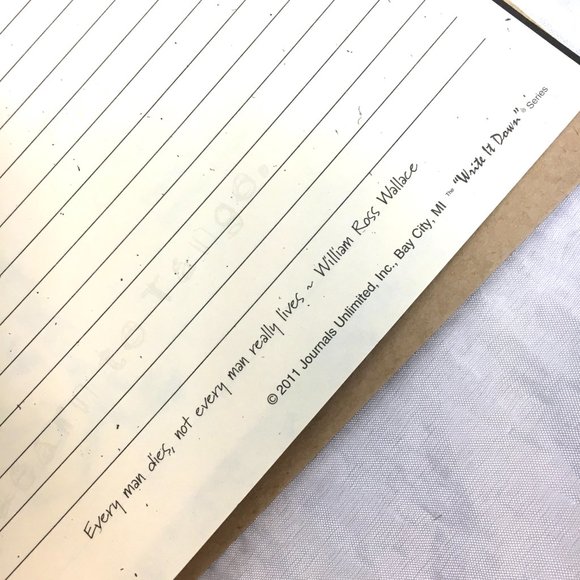 Every man dies, not every man really lives ~ William Ross Wallace
© 2011 Journals Unlimited, Inc., Bay City, MI The "Write It Down"® Series